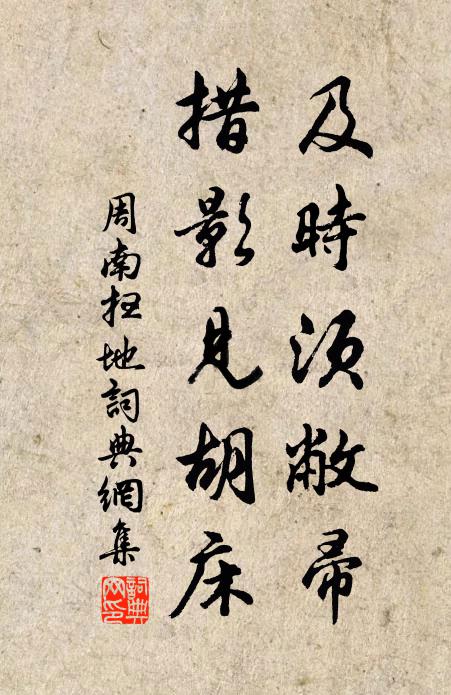 及時須敝帚
措影見胡床
周南掃地詞典網集
詞典
网印